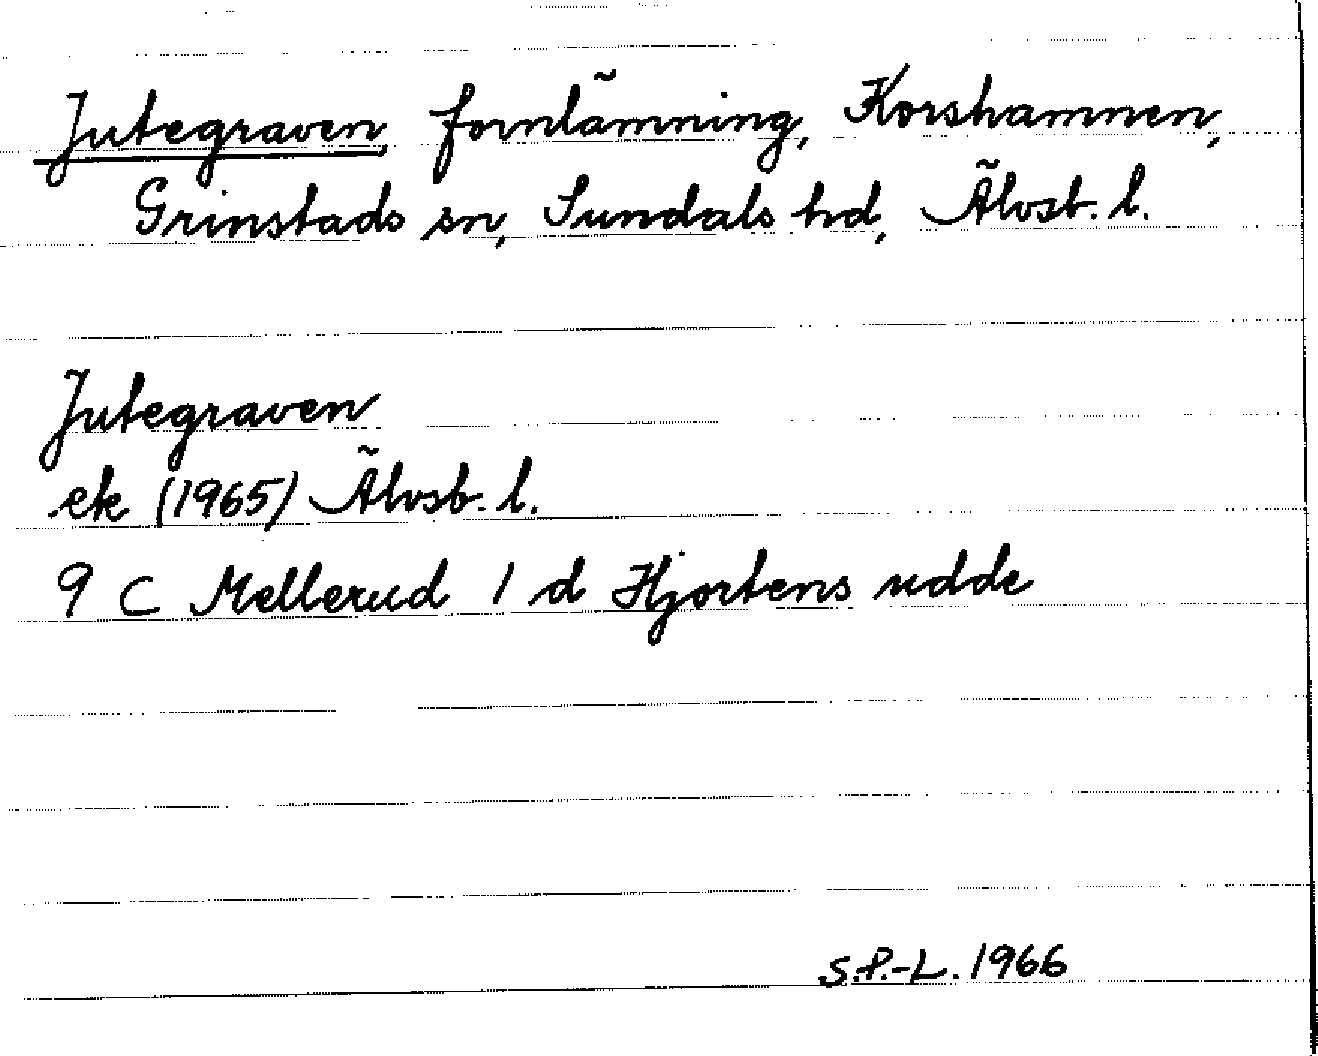 Jutegraven, fornlämning, Korshamnen,
Grinstads sn, Sundals hd, Älvsb. l.
Jutegraven
ek (1965) Älvsb. l.
9 C Mellerud 1 d Hjortens udde
S.P.-L. 1966